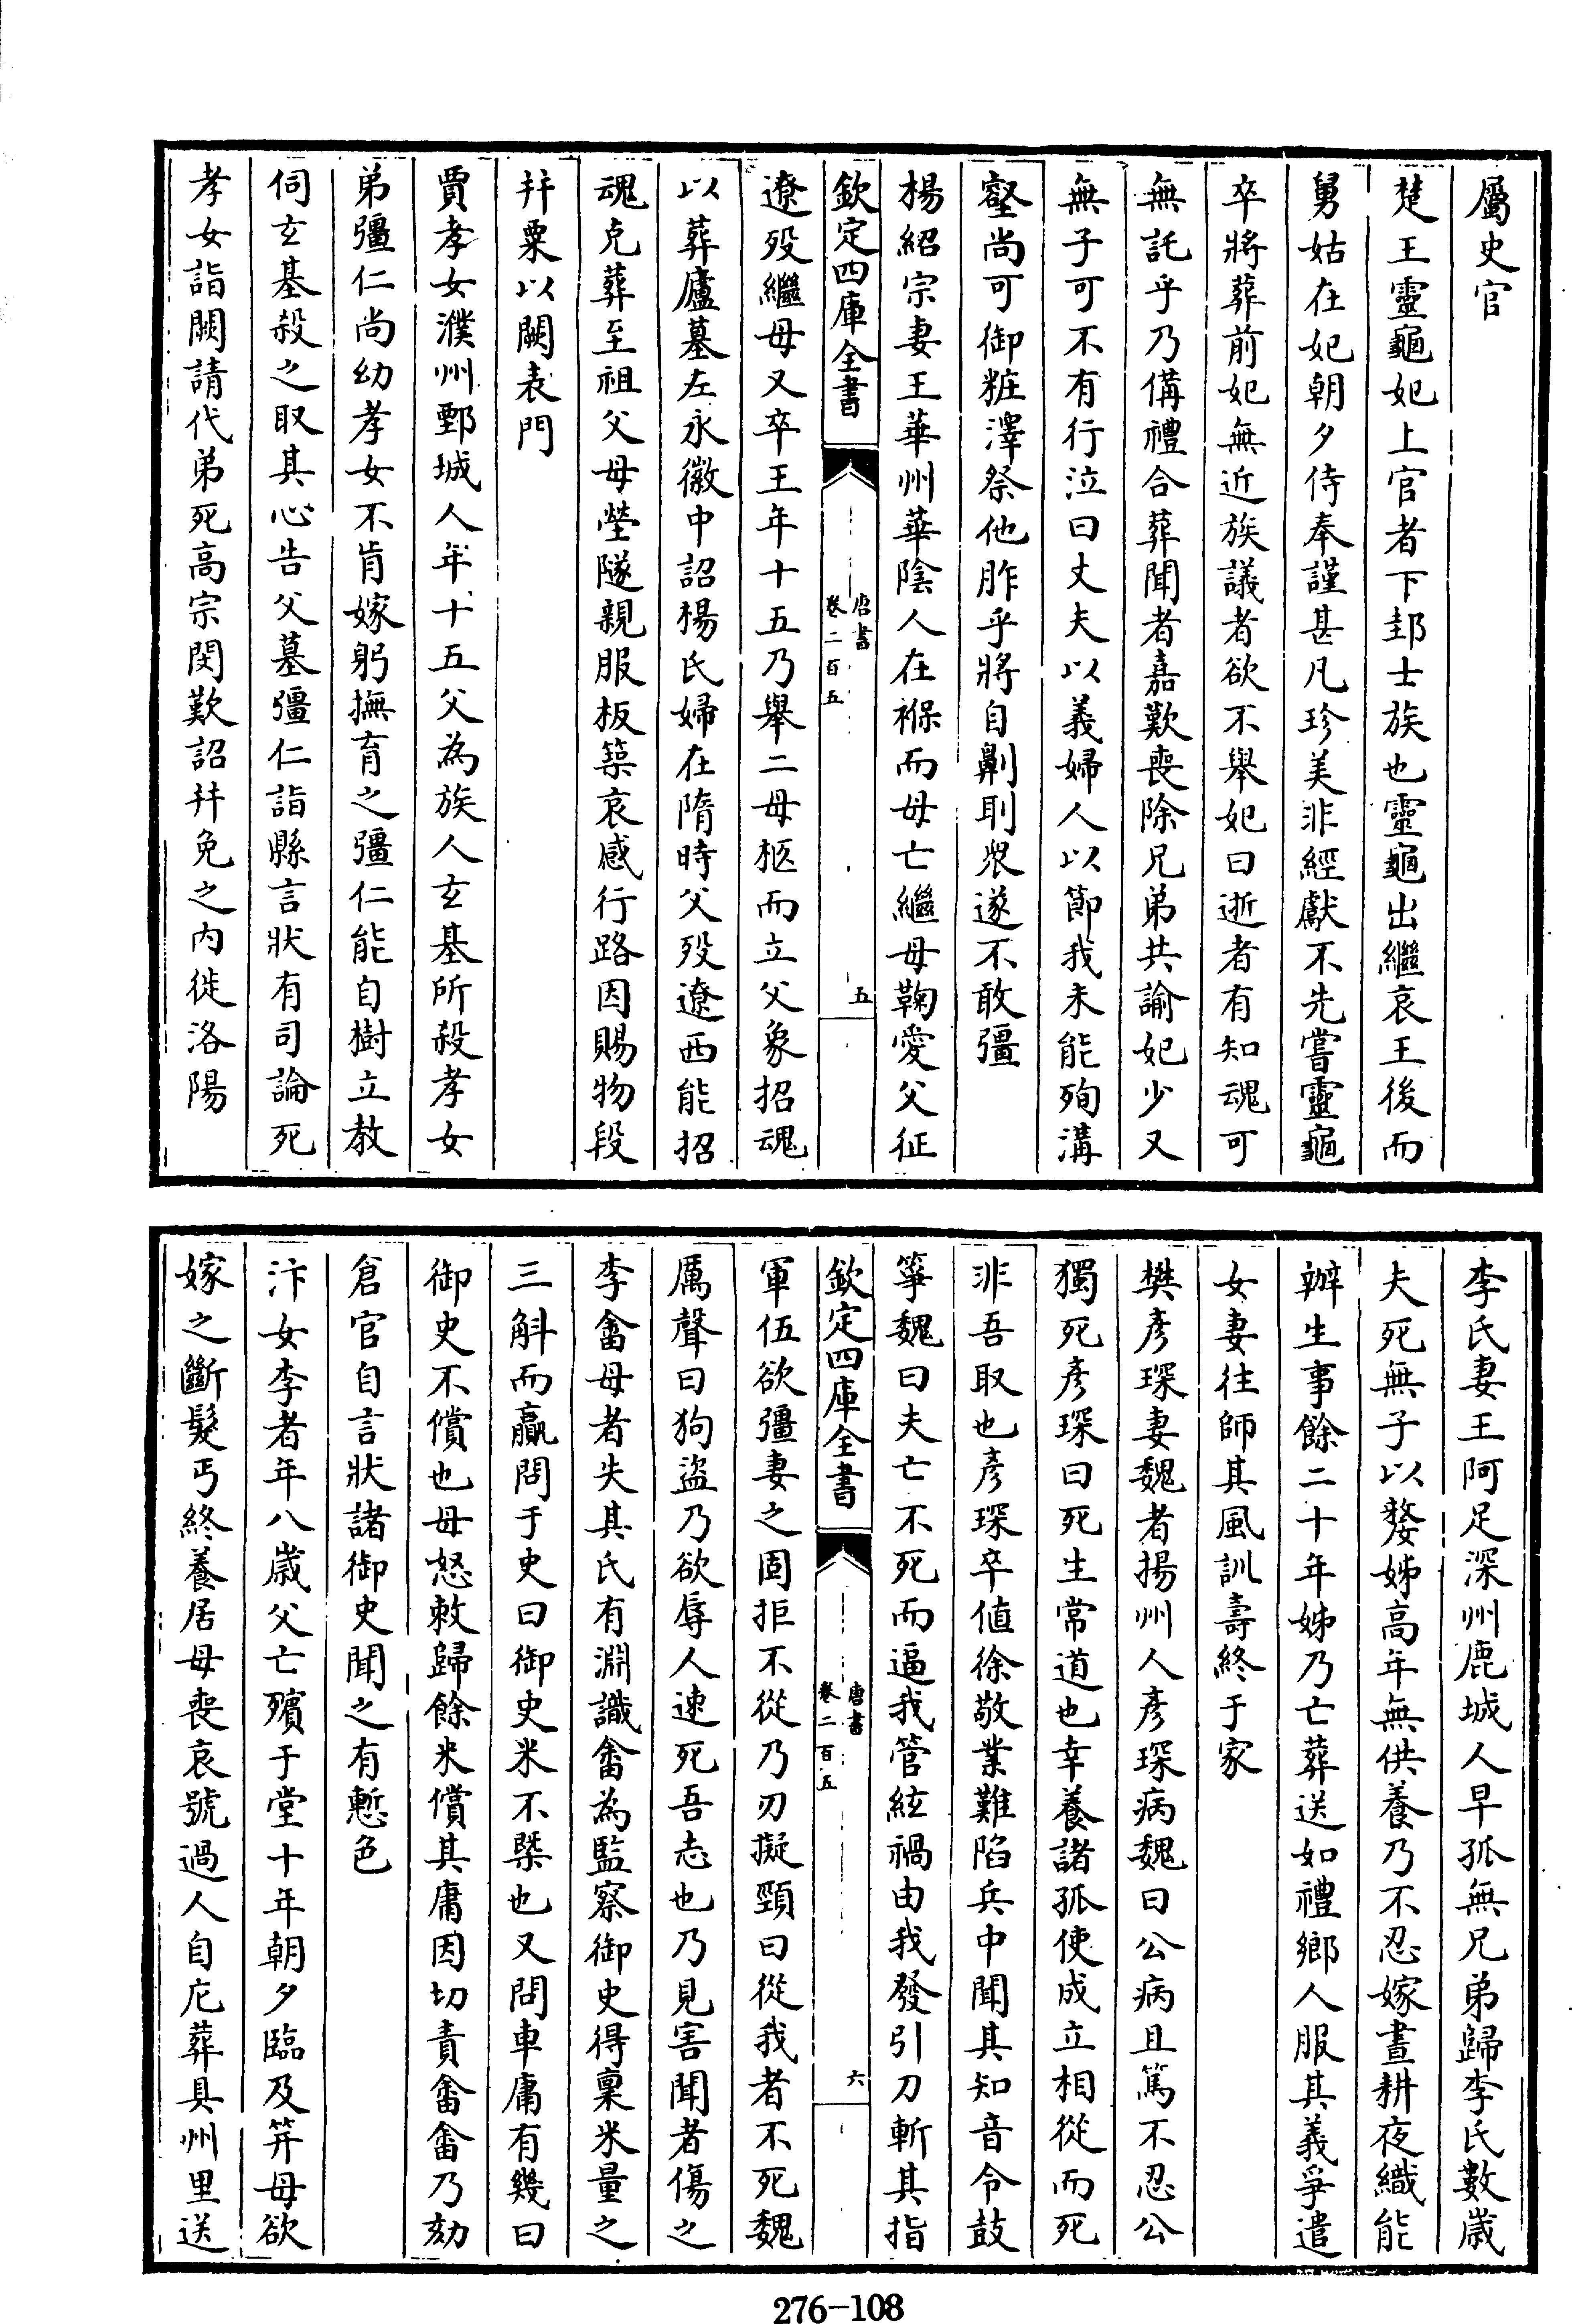 屬史官
楚王靈龜妃上官者下邽士族也靈龜出繼哀王後而
舅姑在妃朝夕侍奉謹甚凡珍美非經獻不先嘗靈龜
卒將葬前妃無近族議者欲不舉妃曰逝者有知魂可
無託乎乃備禮合葬聞者嘉歎喪除兄弟共諭妃少又
無子可不有行泣曰丈夫以義婦人以節我未能殉溝
壑尚可御粧澤祭他胙乎將自劓刵衆遂不敢彊
楊紹宗妻王華州華陰人在褓而母亡繼母鞠愛父征
欽定四庫全書
唐書
卷二百五
五
遼歿繼母又卒王年十五乃舉二母柩而立父象招魂
以葬廬墓左永徽中詔楊氏婦在隋時父歿遼西能招
魂克葬至祖父母塋隧親服板築哀感行路因賜物段
幷粟以闕表門
賈孝女濮州鄄城人年十五父為族人玄基所殺孝女
弟彊仁尚幼孝女不肯嫁躬撫育之彊仁能自樹立教
伺玄基殺之取其心告父墓彊仁詣縣言狀有司論死
孝女詣闕請代弟死高宗閔歎詔幷免之內徙洛陽
李氏妻王阿足深州鹿城人早孤無兄弟歸李氏數歲
夫死無子以嫠姊高年無供養乃不忍嫁晝耕夜織能
辦生事餘二十年姊乃亡葬送如禮鄉人服其義爭遣
女妻往師其風訓壽終于家
樊彥琛妻魏者揚州人彥琛病魏曰公病且篤不忍公
獨死彥琛曰死生常道也幸養諸孤使成立相從而死
非吾取也彥琛卒値徐敬業難陷兵中聞其知音令鼓
箏魏曰夫亡不死而逼我管絃禍由我發引刀斬其指
欽定四庫全書
唐書
卷二百五
六
軍伍欲彊妻之固拒不從乃刃擬頸曰從我者不死魏
厲聲曰狗盜乃欲辱人速死吾志也乃見害聞者傷之
李畬母者失其氏有淵識畬為監察御史得稟米量之
三斛而贏問于史曰御史米不槩也又問車庸有幾曰
御史不償也母怒敕歸餘米償其庸因切責畬畬乃劾
倉官自言狀諸御史聞之有慙色
汴女李者年八歲父亡殯于堂十年朝夕臨及笄母欲
嫁之斷髮丐終養居母喪哀號過人自庀葬具州里送
276-108